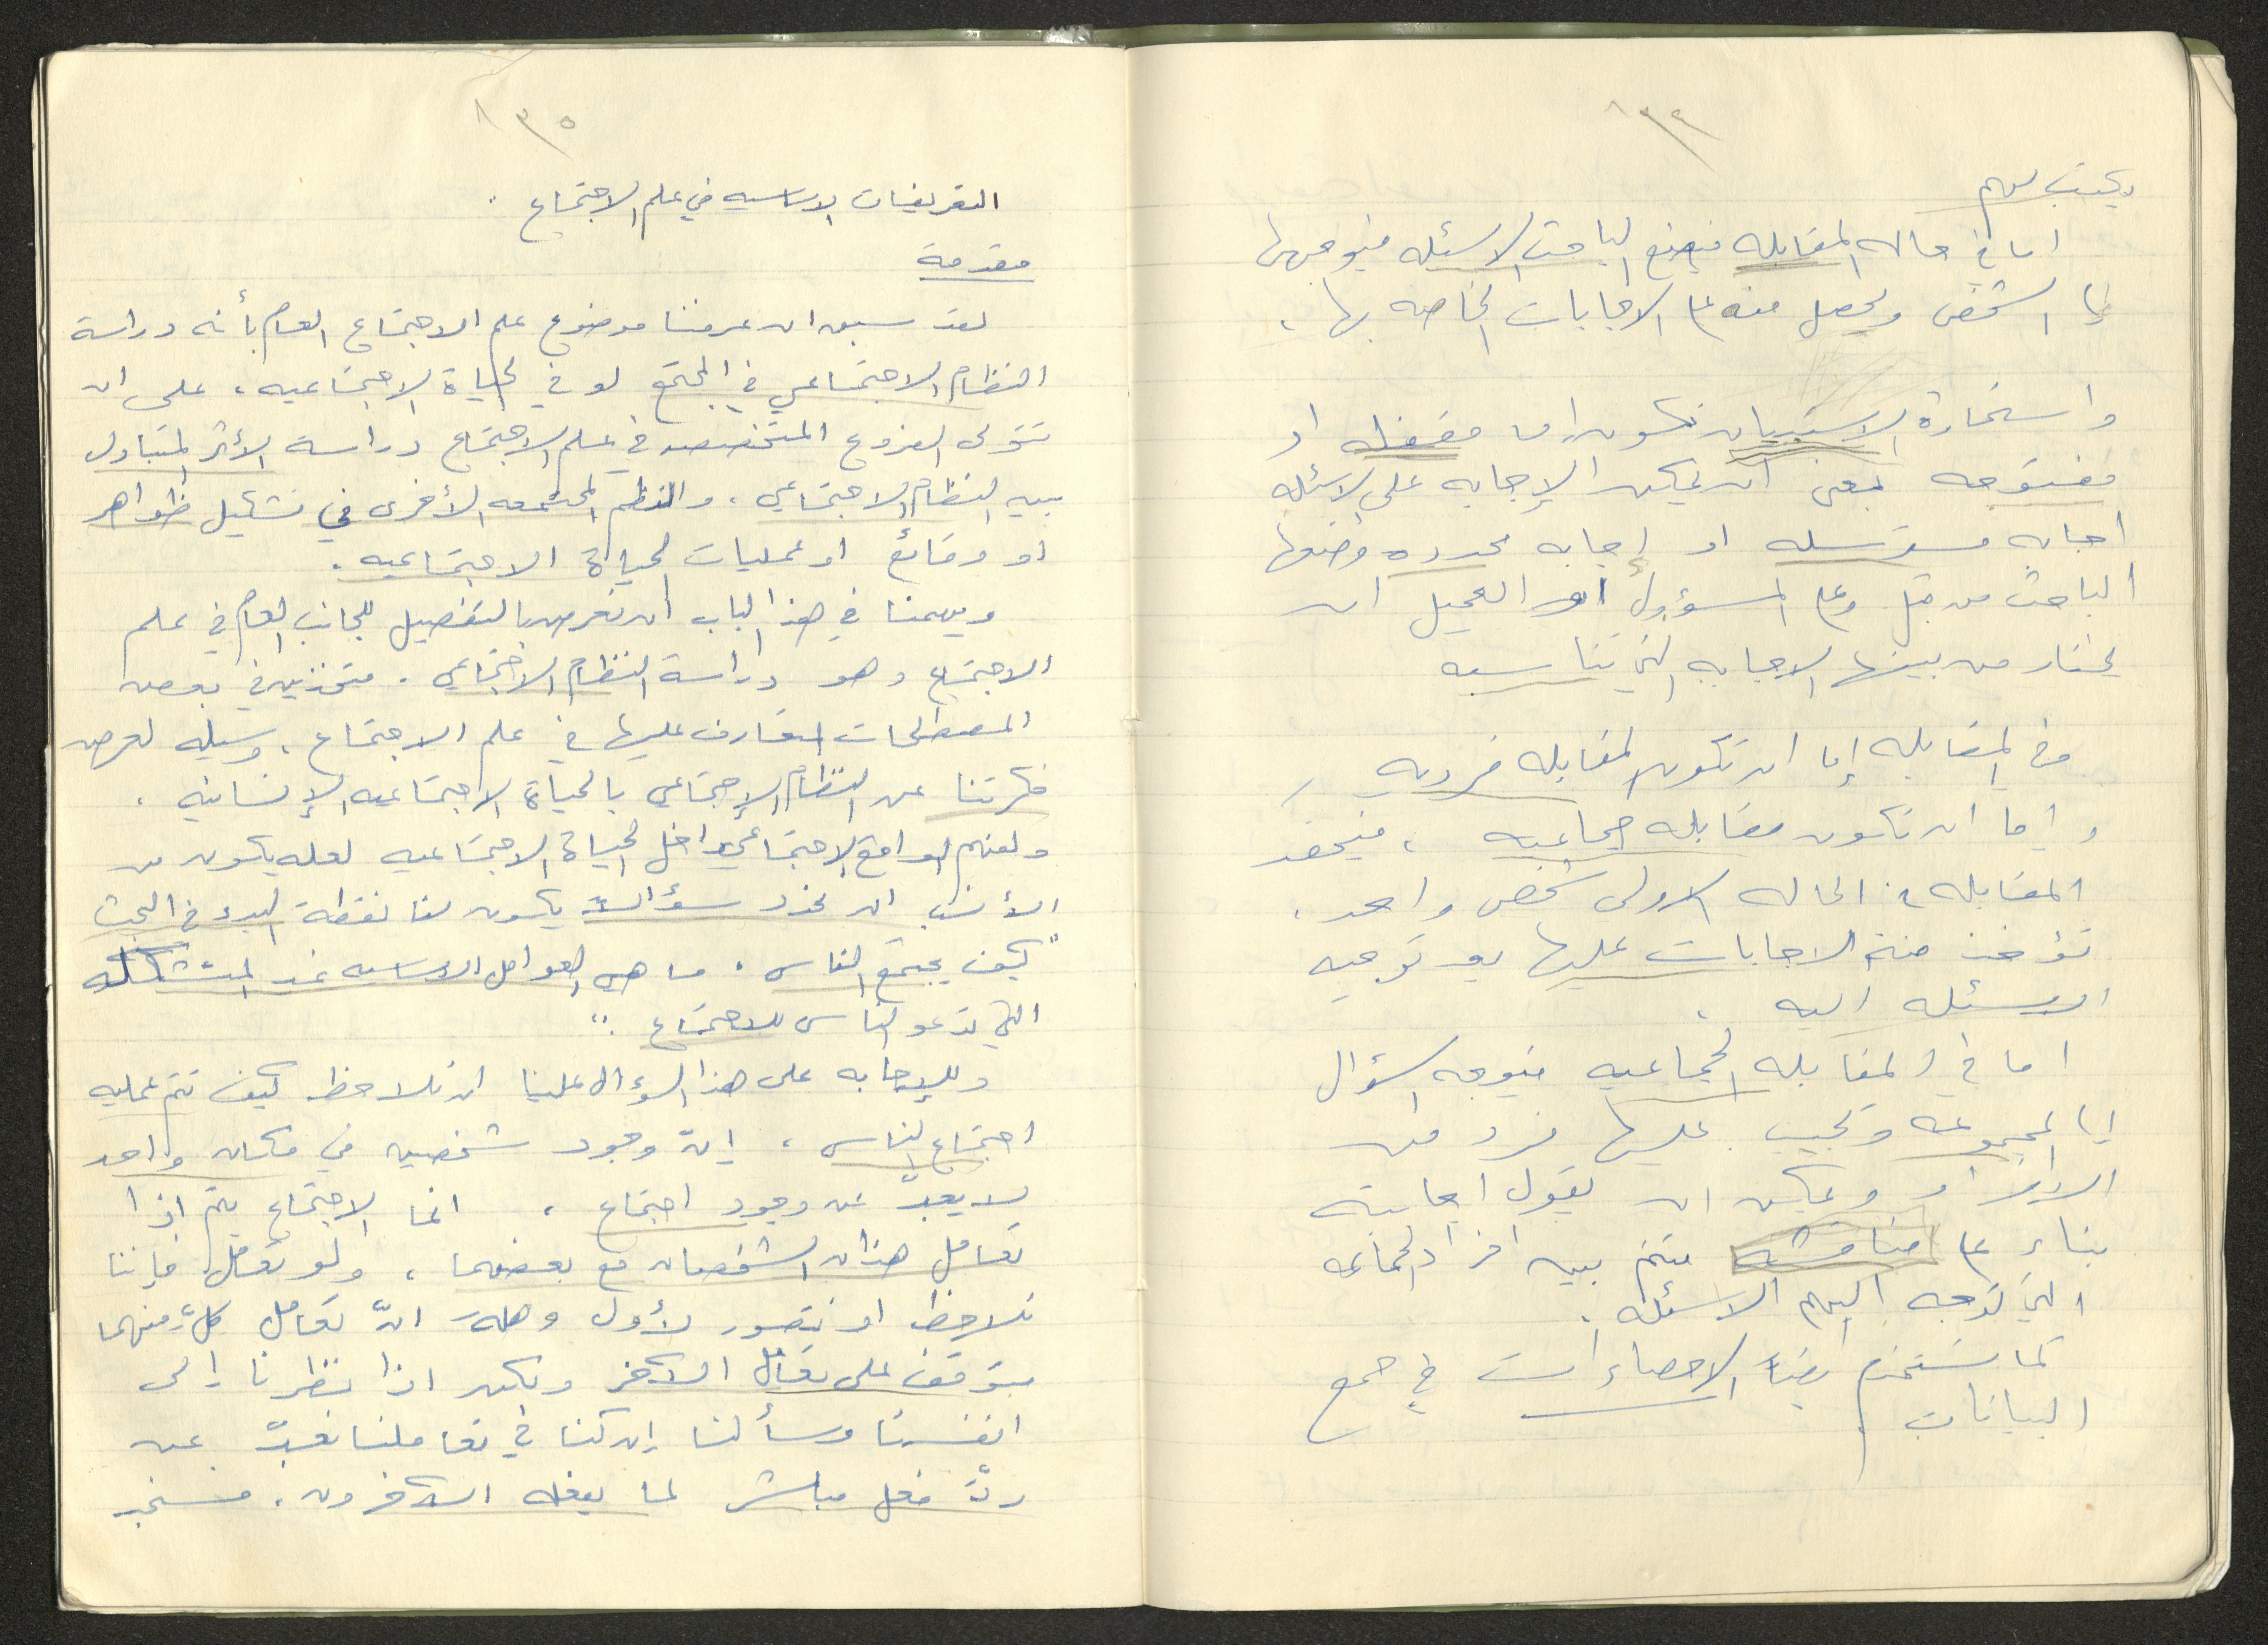 ١٣٤
يكتب لهم
اما في حاله المقابله فيضع الباحث الاسئله فيوجهها
إلى الشخص ويحصل منه على الاجابات الخاصه بها ،
واستمارة الاستبيان تكون إما مقفله او
مفتوحه بمعنى ان يمكن الإجابه على الاسئله
اجابه مسترسله او إجابه محدده وضعها
الباحث من قبل وعلى المسؤول او العميل ان
يختار من بينها الاجابه التي تناسبه
وفي المقابله إما ان تكون المقابله فرديه
واما ان تكون مقابله جماعيه ، فيحضر
المقابله في الحاله الاولى شخص واحد ،
تؤخذ منه الاجابات عليها بعد توجيه
الاسئله اليه ،
اما في المقابله الجماعيه فيوجه السؤال
إلى المجموعه ويجيب عليها فرد من
الافراد ويمكن ان يقول اجابته
بناء على مناقشه تتم بين افراد الجماعه
التي توجه اليهم الاسئله .
كما تستخدم ايضاً الاحصاءات في جمع
البيانات
١٣٥
التعريفات الاساسيه في علم الاجتماع .
مقدمة
لقد سبق ان عرفنا موضوع علم الاجتماع العام بأنه دراسة
النظام الاجتماعي في المجتمع او في الحياة الاجتماعيه ، على ان
تتولى الفروع المتخصصه في علم الاجتماع دراسة الأثر المتبادل
بين النظام الاجتماعي ، والنظم المجتمعه الأخرى في تشكيل ظواهر
او وقائع او عمليات الحياة الاجتماعيه .
ويهمنا في هذا الباب ان نعرض بالتفصيل للجانب العام في علم
الاجتماع وهو دراسة النظام الاجتماعي . متخذين في بعض
المصطلحات المتعارف عليها في علم الاجتماع ، وسيله لعرض
فكرتنا عن النظام الإجتماعي بالحياة الاجتماعيه الإنسانيه .
ولفهم الواقع الاجتماعي داخل الحياة الاجتماعيه لعله يكون من
الأنسب ان نحدد سؤالاً يكون لنا نقطة البدء في البحث
"كيف يجتمع الناس ، ما هي العوامل الاساسيه غير المتشكله
التي تدعو الناس للاجتماع ."
وللإجابه على هذا السؤال علينا ان نلاحظ كيف تتم عمليه
اجتماع الناس ، إنّ وجود شخصين في مكان واحد
لا يعبّر عن وجود اجتماع ، انما الاجتماع يتم اذا
تعامل هذان الشخصان مع بعضهما ، ولو تعامل فإننا
نلاحظ او نتصور لأول وهلة انّ تعامل كلّ منهما
متوقف على تعامل الآخر ولكن اذا نظرنا إلى
انفسنا وسألنا إن كنا في تعاملنا نعبّر عن
ردّ فعل مباشر لما يفعله الآخرون ، فسنجد